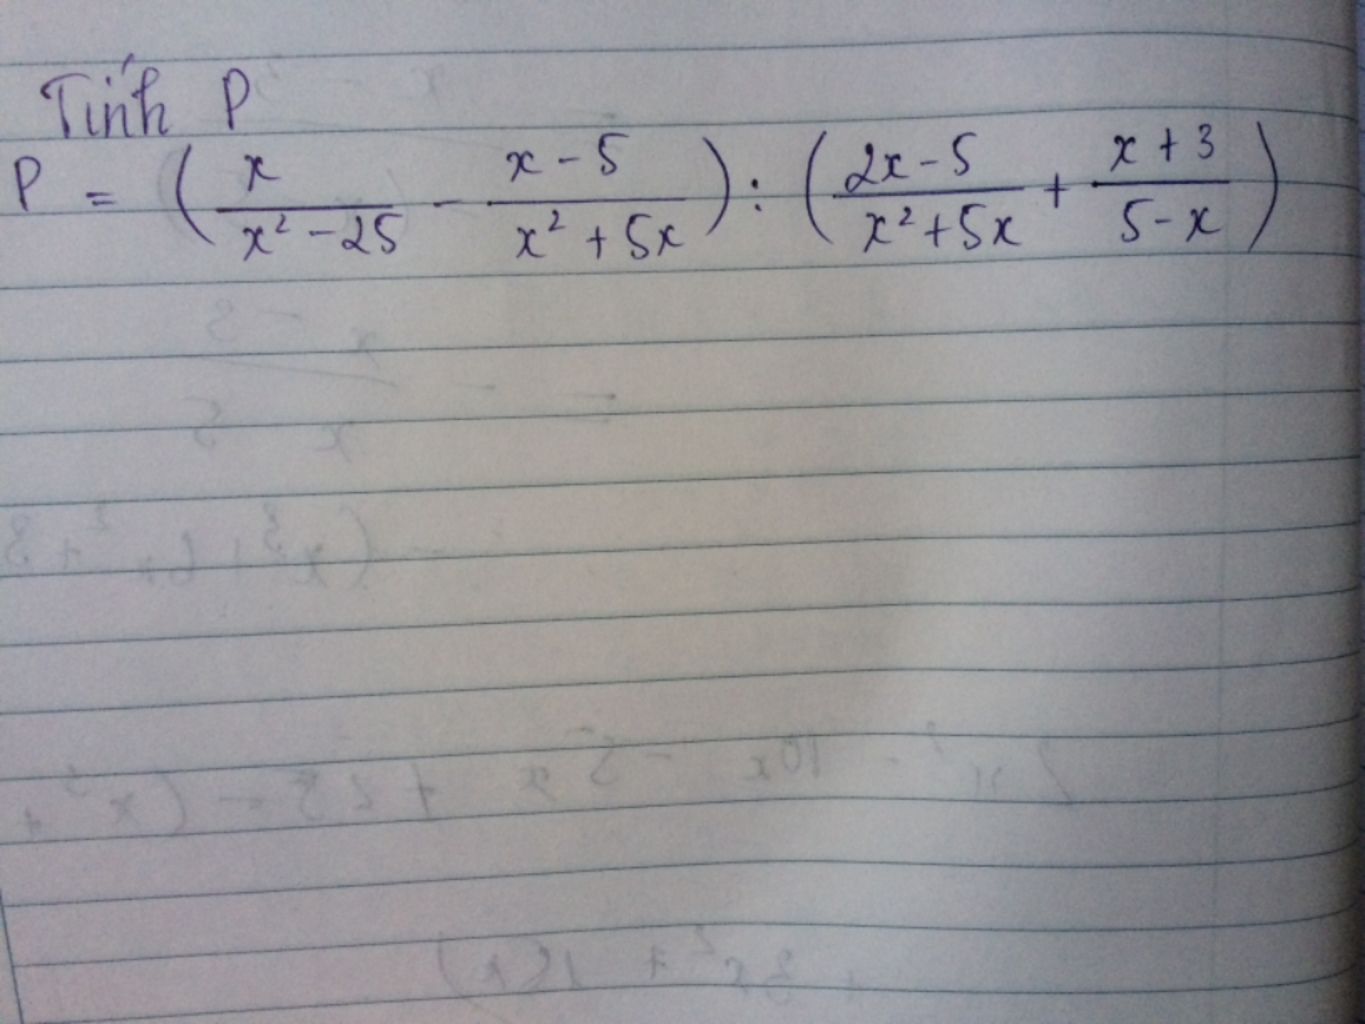 Tính P
P = ( x / x² - 25 - x - 5 / x² + 5x ) : ( 2x - 5 / x² + 5x + x + 3 / 5 - x )